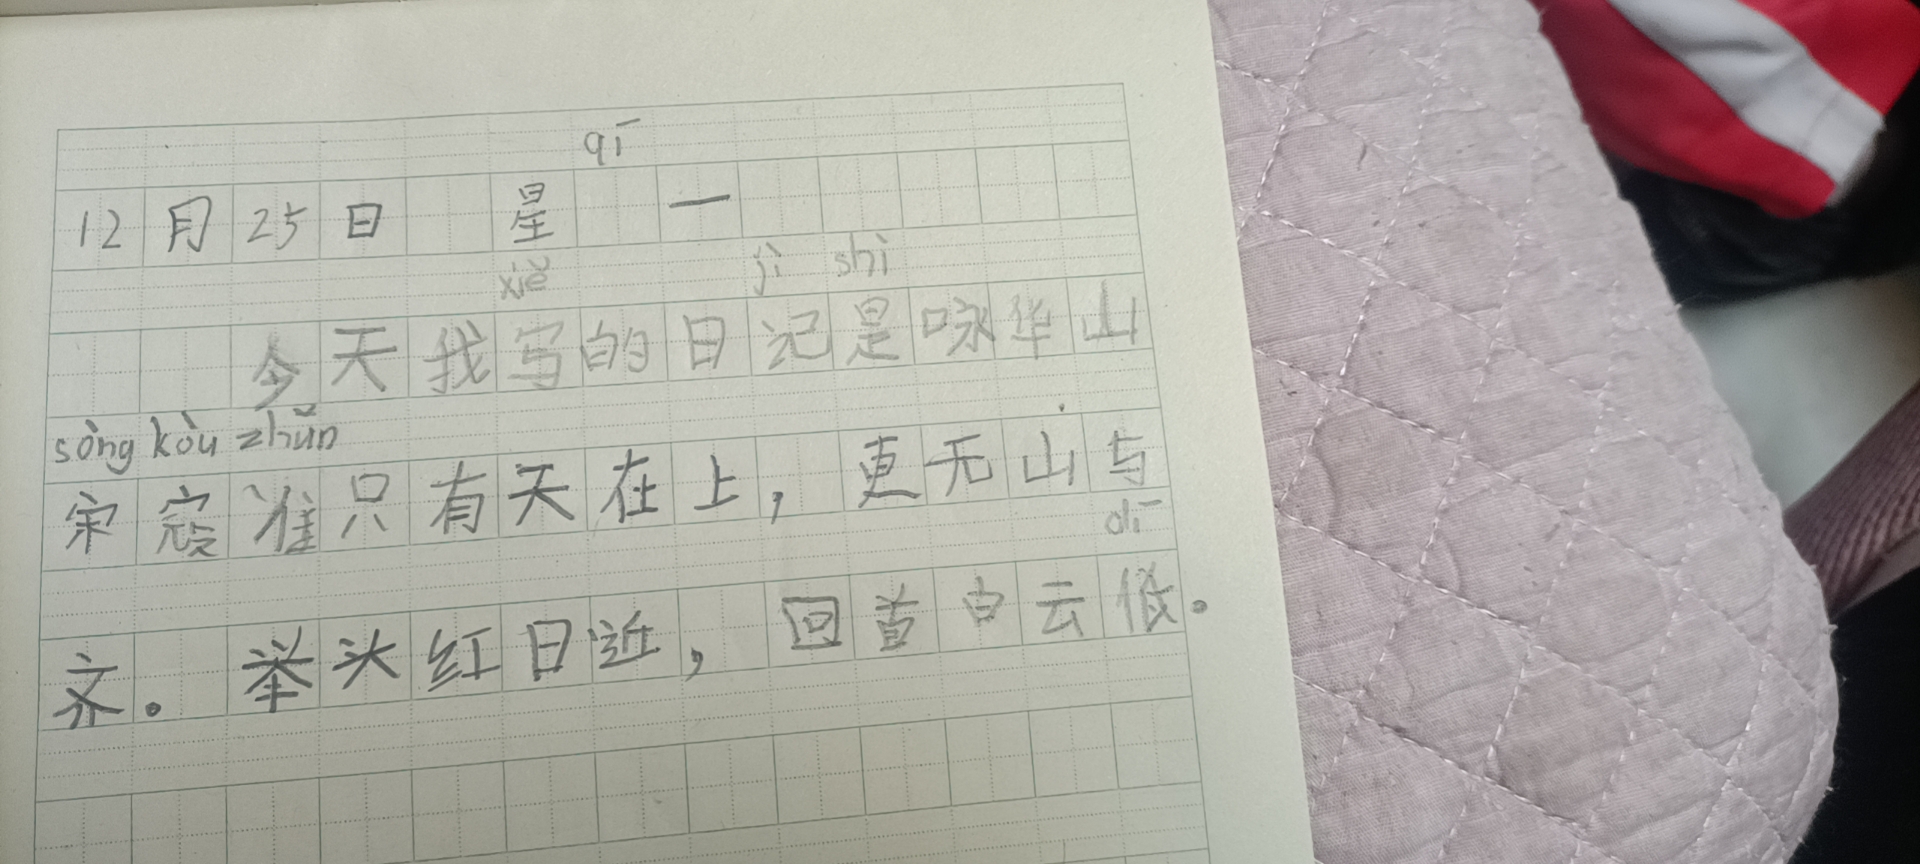 qī
12月25日 星 一
xiě jì shì
今天我写的日记是咏华山
sòng kòu zhǔn
宋寇准只有天在上，更无山与
dī
齐。举头红日近，回首白云低。